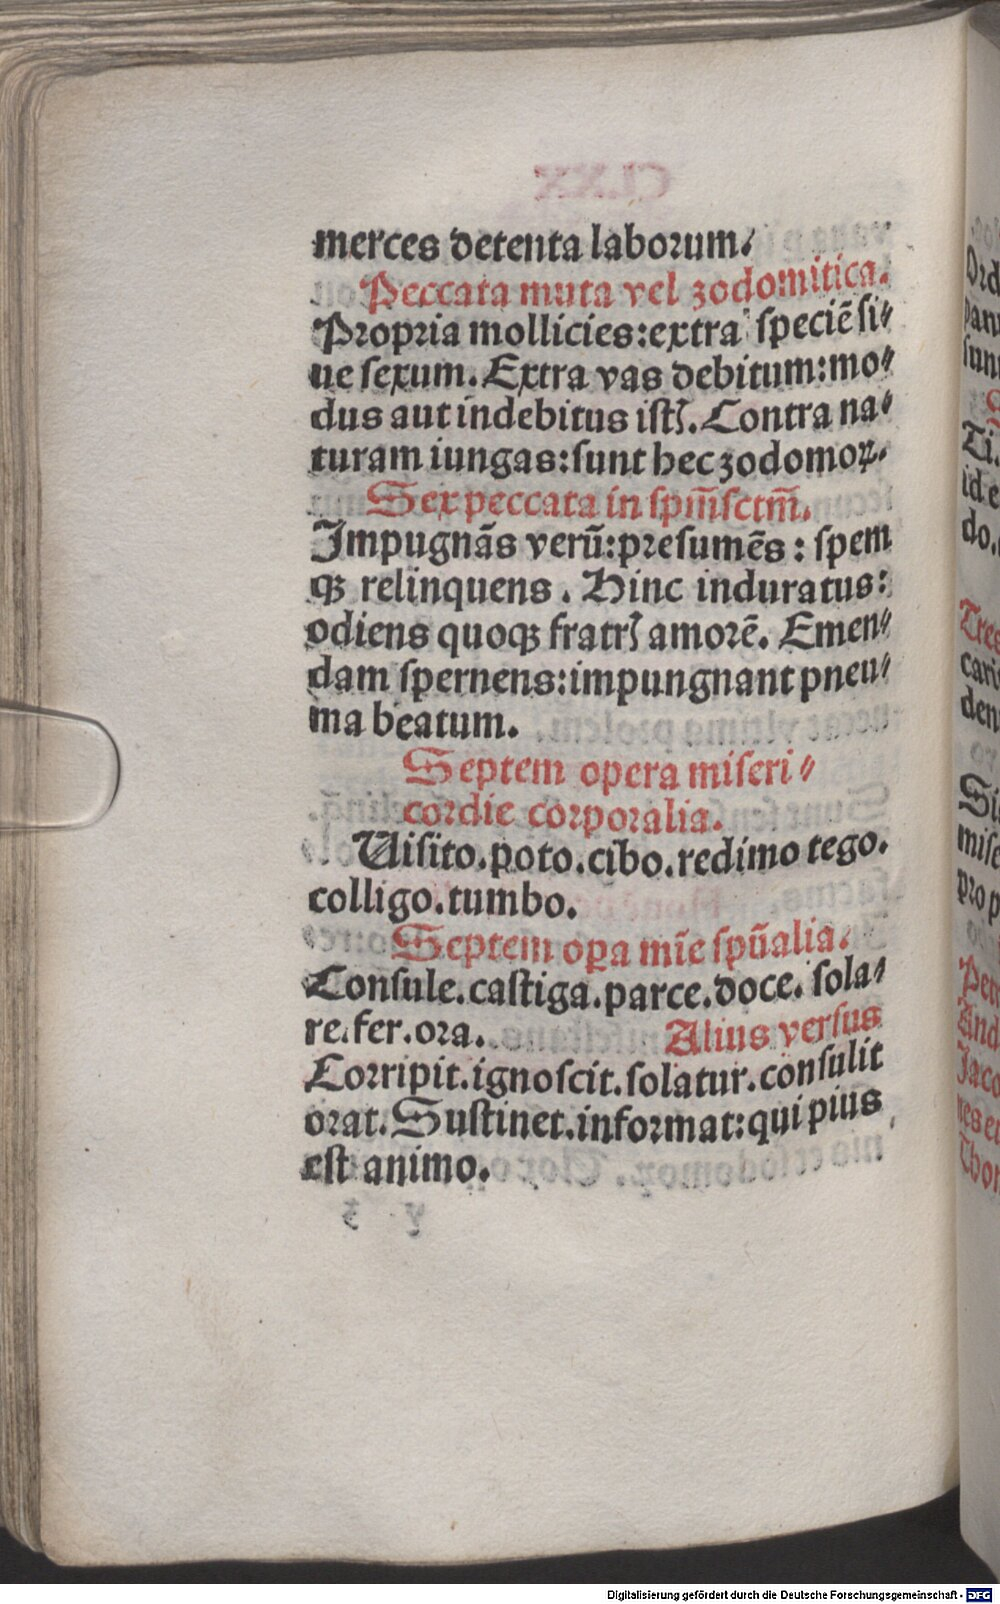 merces detenta laborum.
Peccata muta vel zodomitica.
Propria mollicies:extra speciē si⸗
ue sexum. Extra vas debitum:mo⸗
dus aut indebitus istꝭ. Contra na⸗
turam iungas:sunt hec zodomoꝝ.
Sex peccata in spm̄sctm̄.
Impugnās verū:presumēs: spem
qꝫ relinquens. Hinc induratus:
odiens quoqꝫ fratrꝭ amorē. Emen⸗
dam spernens:impungnant pneu⸗
ma beatum.
Septem opera miseri⸗
cordie corporalia.
Uisito.poto.cibo.redimo tego.
colligo.tumbo.
Septem oꝑa mīe spūalia.
Consule.castiga.parce.doce. sola⸗
re.fer.ora.
Alius versus
Corripit.ignoscit.solatur.consulit
orat. Sustinet.informat:qui pius
est animo.
Digitalisierung gefördert durch die Deutsche Forschungsgemeinschaft - DFG